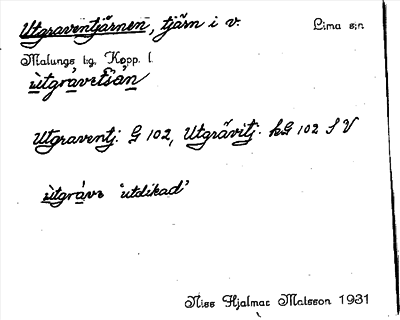 Utgraventjärnen, tjärn i v. Lima s:n
Malungs tg. Kopp. l.
ùtgràvetśàn
Utgraventj. G 102, Utgrävitj. kG 102 S V
ùtgràve 'utdikad'
Niss Hjalmar Matsson 1931